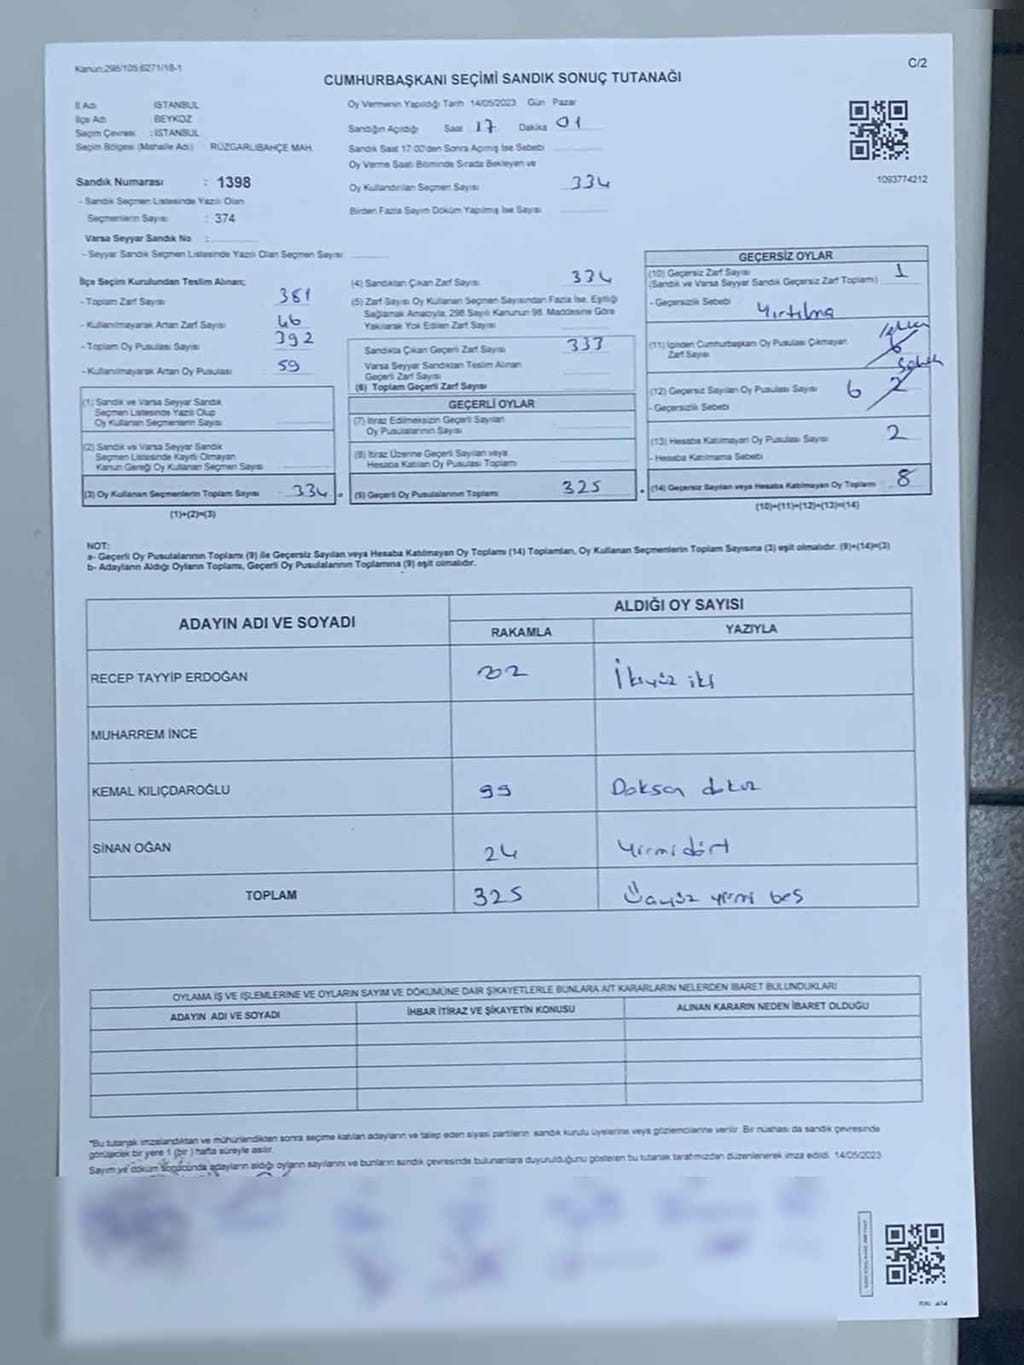 Kanun:298/105;6271/18-1
C/2
CUMHURBAŞKANI SEÇİMİ SANDIK SONUÇ TUTANAĞI
İl Adı : İSTANBUL
İlçe Adı : BEYKOZ
Seçim Çevresi : İSTANBUL
Seçim Bölgesi (Mahalle Adı) : RÜZGARLIBAHÇE MAH.
Sandık Numarası : 1398
- Sandık Seçmen Listesinde Yazılı Olan
Seçmenlerin Sayısı : 374
Varsa Seyyar Sandık No :
- Seyyar Sandık Seçmen Listesinde Yazılı Olan Seçmen Sayısı
Oy Vermenin Yapıldığı Tarih 14/05/2023 Gün Pazar
Sandığın Açıldığı Saat 17 Dakika 01
Sandık Saat 17:00'den Sonra Açılmış İse Sebebi
Oy Verme Saati Bitiminde Sırada Bekleyen ve
Oy Kullandırılan Seçmen Sayısı 334
Birden Fazla Sayım Döküm Yapılmış İse Sayısı
1093774212
İlçe Seçim Kurulundan Teslim Alınan;
- Toplam Zarf Sayısı 381
- Kullanılmayarak Artan Zarf Sayısı 46
- Toplam Oy Pusulası Sayısı 392
- Kullanılmayarak Artan Oy Pusulası 59
(1) Sandık ve Varsa Seyyar Sandık
Seçmen Listesinde Yazılı Olup
Oy Kullanan Seçmenlerin Sayısı
(2) Sandık ve Varsa Seyyar Sandık
Seçmen Listesinde Kayıtlı Olmayan
Kanun Gereği Oy Kullanan Seçmen Sayısı
(3) Oy Kullanan Seçmenlerin Toplam Sayısı 334
(1)+(2)=(3)
(4) Sandıktan Çıkan Zarf Sayısı 334
(5) Zarf Sayısı Oy Kullanan Seçmen Sayısından Fazla İse, Eşitliği
Sağlamak Amacıyla; 298 Sayılı Kanunun 98. Maddesine Göre
Yakılarak Yok Edilen Zarf Sayısı
Sandıkta Çıkan Geçerli Zarf Sayısı 333
Varsa Seyyar Sandıktan Teslim Alınan
Geçerli Zarf Sayısı
(6) Toplam Geçerli Zarf Sayısı
GEÇERLİ OYLAR
(7) İtiraz Edilmeksizin Geçerli Sayılan
Oy Pusulalarının Sayısı
(8) İtiraz Üzerine Geçerli Sayılan veya
Hesaba Katılan Oy Pusulası Toplamı
(9) Geçerli Oy Pusulalarının Toplamı 325
GEÇERSİZ OYLAR
(10) Geçersiz Zarf Sayısı 1
(Sandık ve Varsa Seyyar Sandık Geçersiz Zarf Toplamı)
- Geçersizlik Sebebi Yırtılma
(11) İçinden Cumhurbaşkanı Oy Pusulası Çıkmayan
Zarf Sayısı
(12) Geçersiz Sayılan Oy Pusulası Sayısı 6 2
- Geçersizlik Sebebi
(13) Hesaba Katılmayan Oy Pusulası Sayısı 2
- Hesaba Katılmama Sebebi
(14) Geçersiz Sayılan veya Hesaba Katılmayan Oy Toplamı 8
(10)+(11)+(12)+(13)=(14)
NOT:
a- Geçerli Oy Pusulalarının Toplamı (9) ile Geçersiz Sayılan veya Hesaba Katılmayan Oy Toplamı (14) Toplamları, Oy Kullanan Seçmenlerin Toplam Sayısına (3) eşit olmalıdır. (9)+(14)=(3)
b- Adayların Aldığı Oyların Toplamı, Geçerli Oy Pusulalarının Toplamına (9) eşit olmalıdır.
ADAYIN ADI VE SOYADI
ALDIĞI OY SAYISI
RAKAMLA YAZIYLA
RECEP TAYYİP ERDOĞAN 202 İkiyüz iki
MUHARREM İNCE
KEMAL KILIÇDAROĞLU 99 Doksan dokuz
SİNAN OĞAN 24 Yirmi dört
TOPLAM 325 Üçyüz yirmi beş
OYLAMA İŞ VE İŞLEMLERİNE VE OYLARIN SAYIM VE DÖKÜMÜNE DAİR ŞİKAYETLERLE BUNLARA AİT KARARLARIN NELERDEN İBARET BULUNDUKLARI
ADAYIN ADI VE SOYADI İHBAR İTİRAZ VE ŞİKAYETİN KONUSU ALINAN KARARIN NEDEN İBARET OLDUĞU
*Bu tutanak imzalandıktan ve mühürlendikten sonra seçime katılan adayların ve talep eden siyasi partilerin sandık kurulu üyelerine veya gözlemcilerine verilir. Bir nüshası da sandık çevresinde
görülecek bir yere 1 (bir) hafta süreyle asılır.
Sayım ve döküm sonucunda adayların aldığı oyların sayılarını ve bunların sandık çevresinde bulunanlara duyurulduğunu gösteren bu tutanak tarafımızdan düzenlenerek imza edildi. 14/05/2023